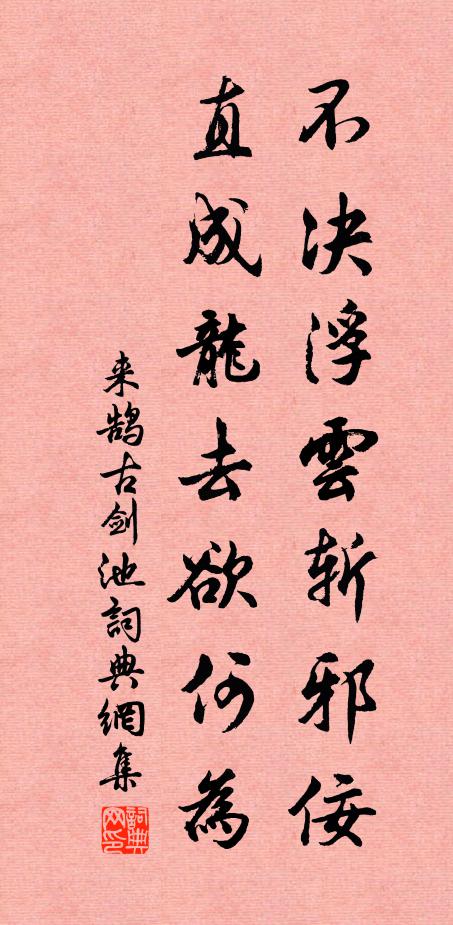 不決浮雲斬邪佞
直成龍去欲何為
来鵠古劍池詞典網集
詞典网印